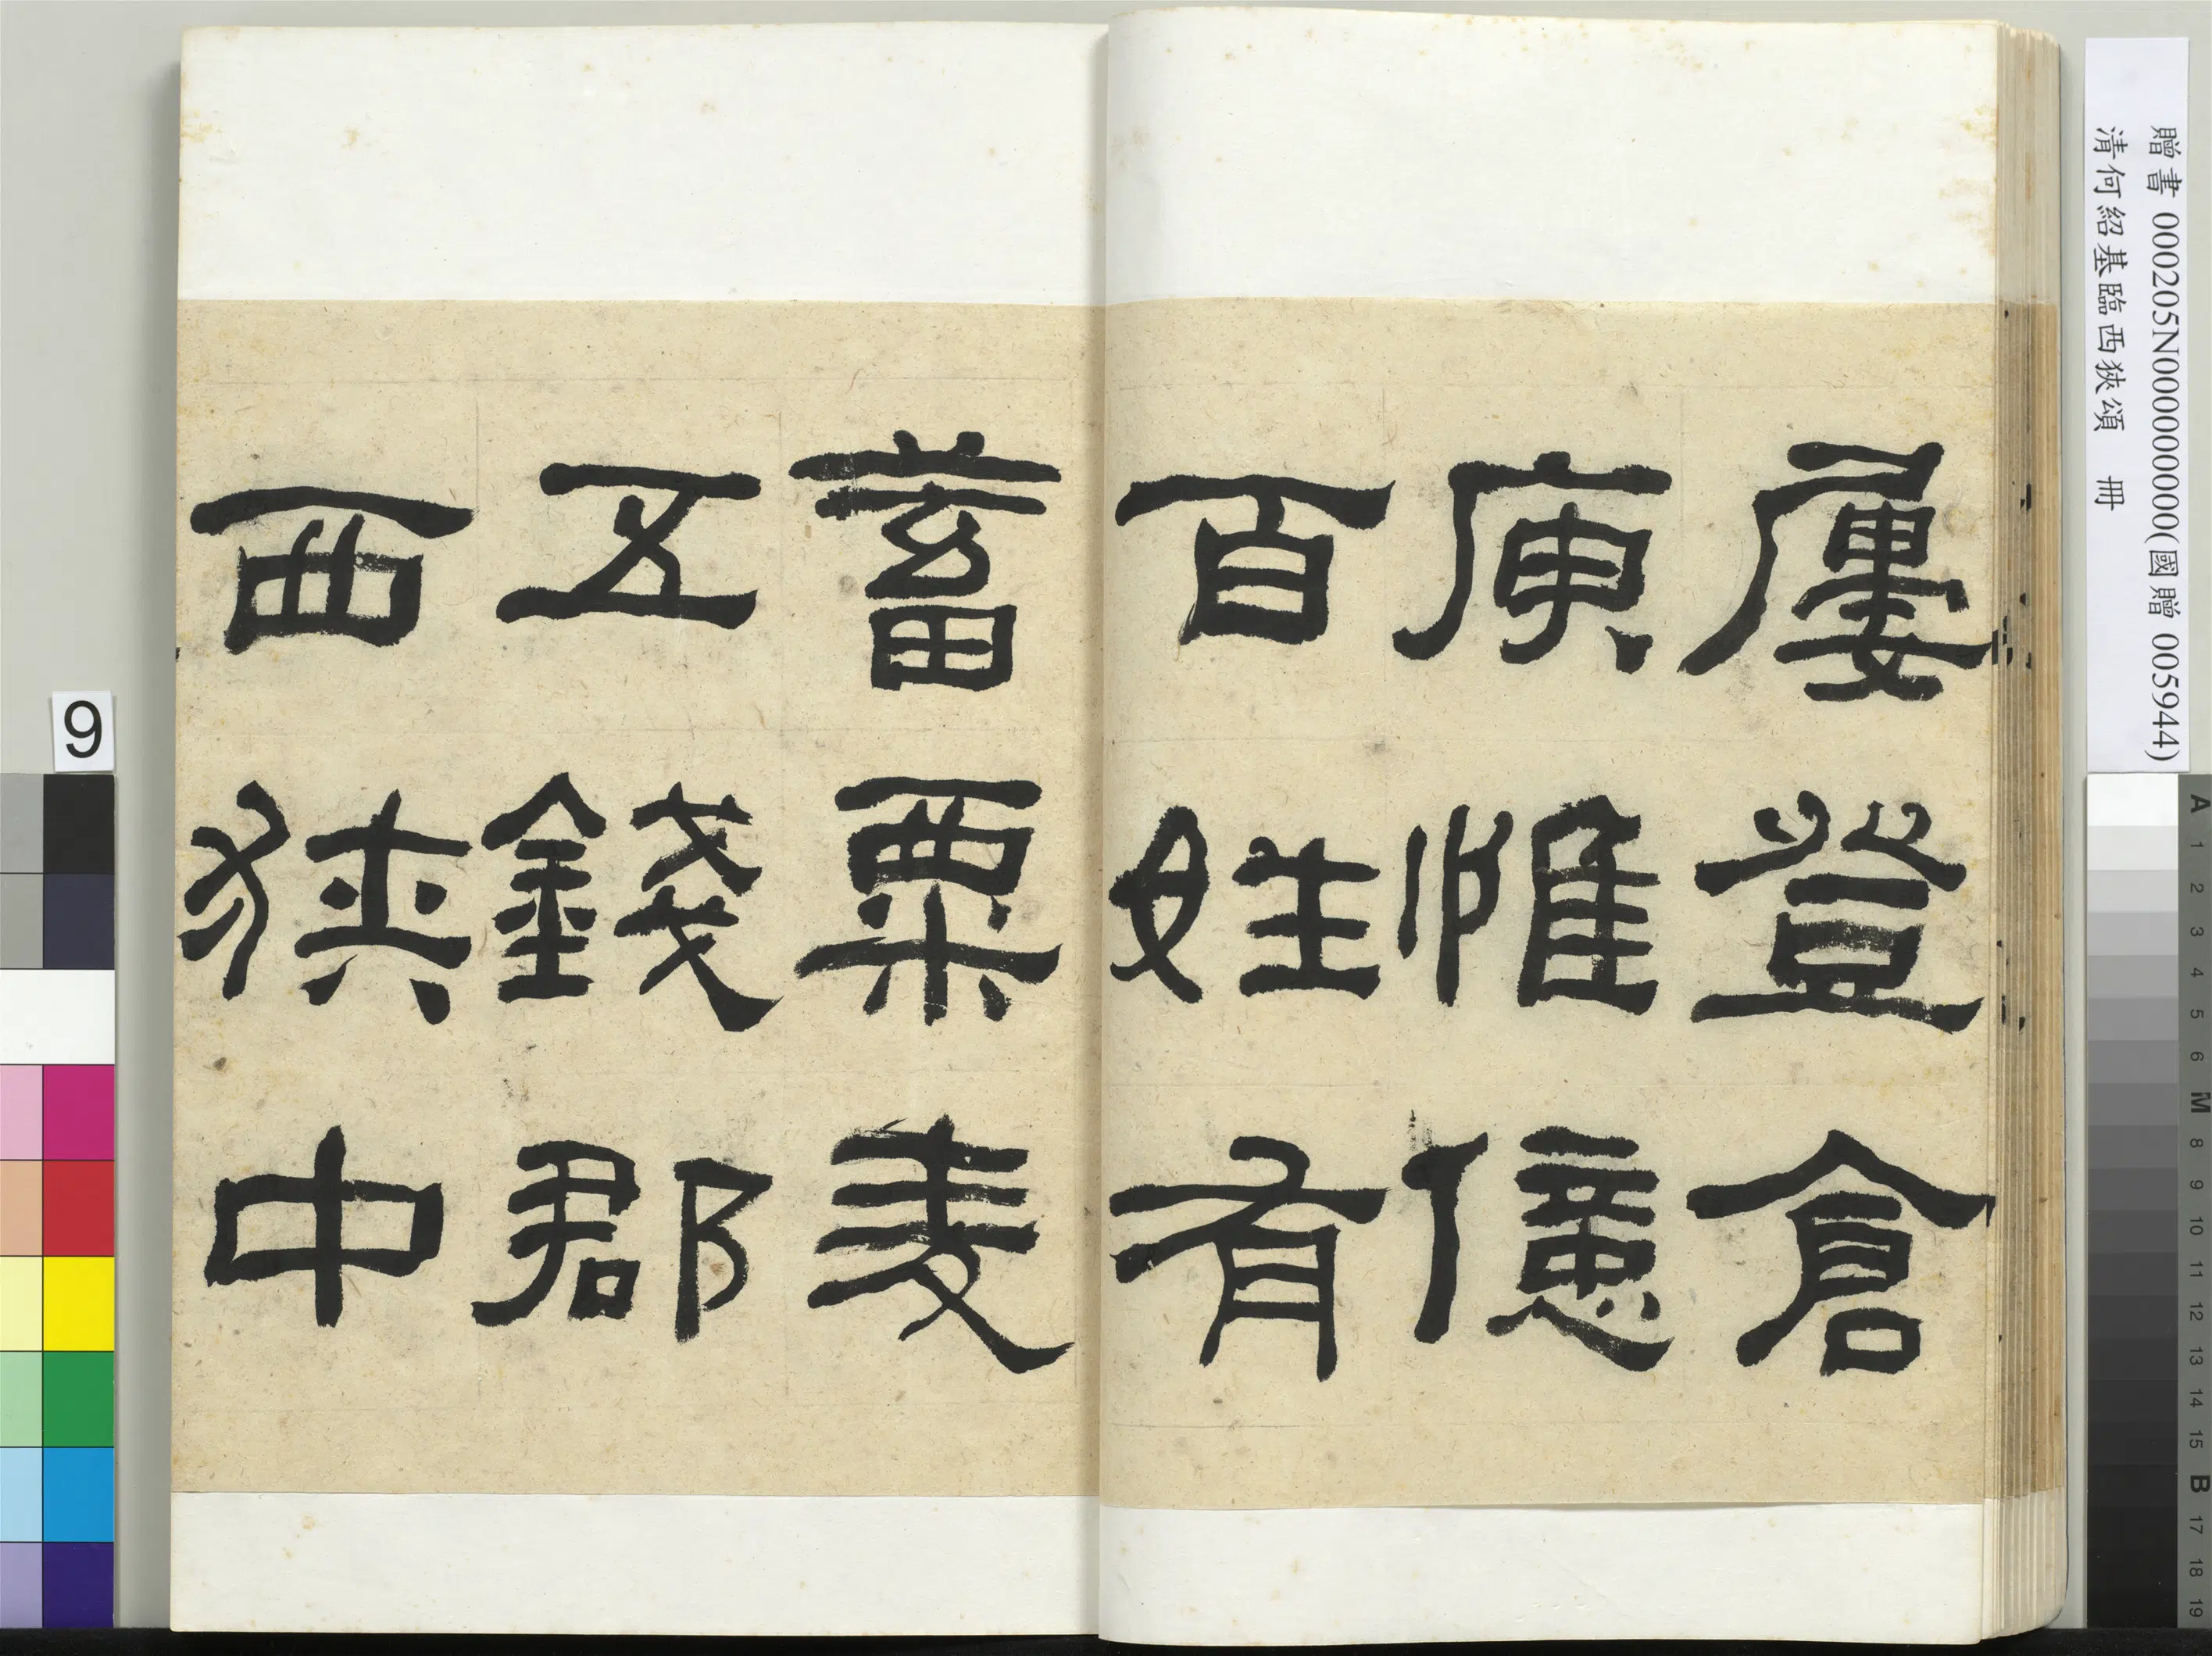 屢登倉
庾惟億
百姓有
蓄粟麦
五錢郡
西狹中
贈書 000205N000000000(國贈 005944)
清何紹基臨西狹頌 冊
9
A 1 2 3 4 5 6 M 8 9 10 11 12 13 14 15 B 17 18 19